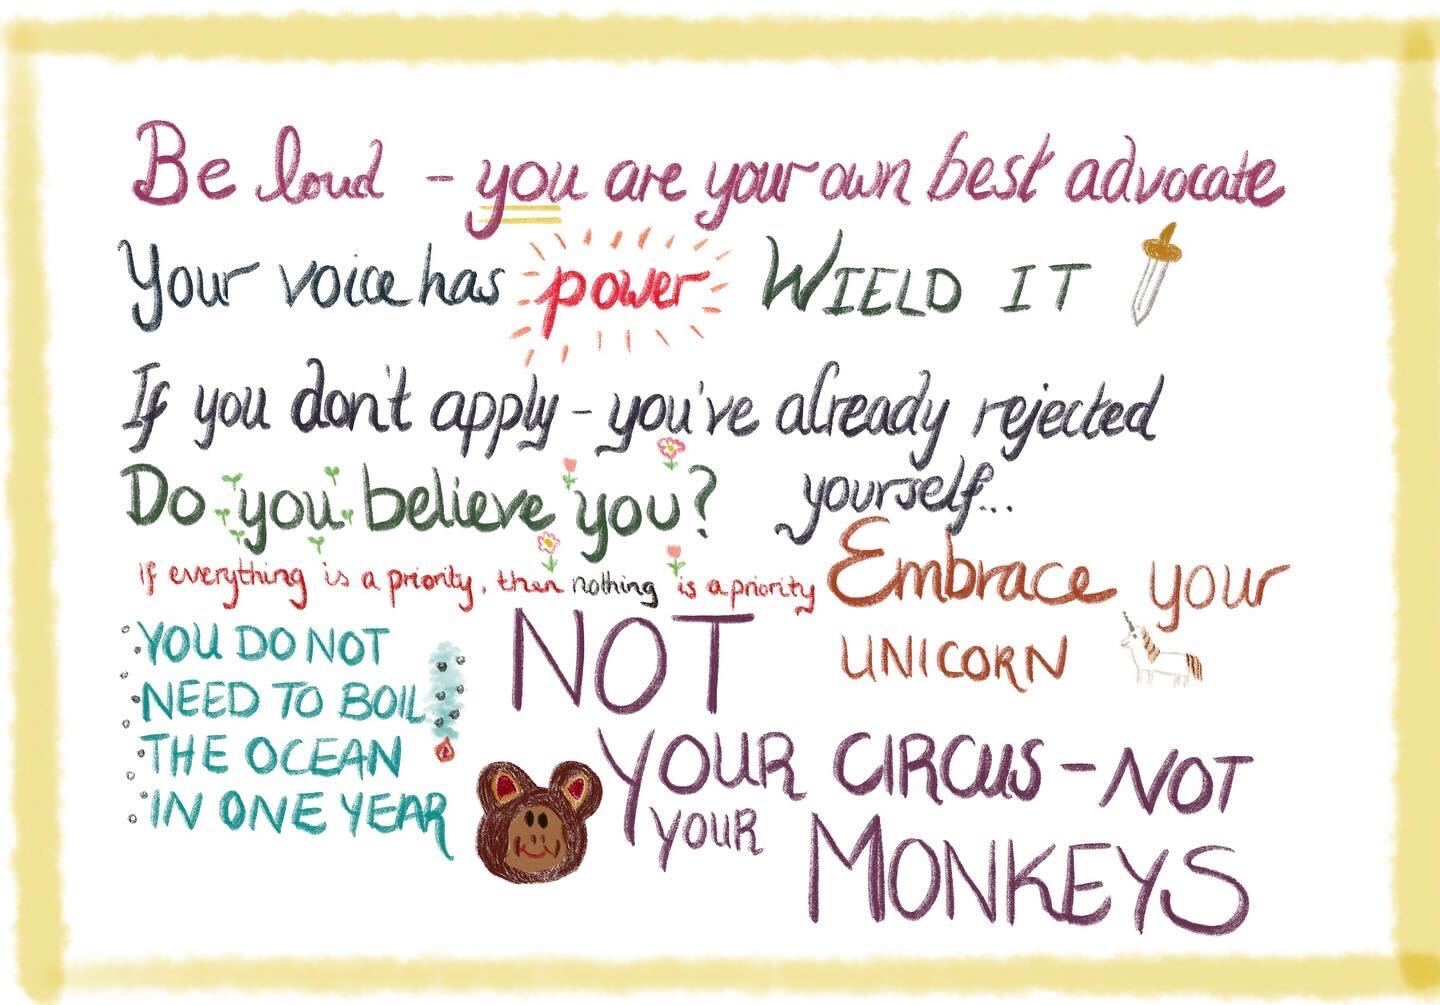 Be loud - you are your own best advocate
Your voice has power WIELD IT
If you don't apply - you've already rejected
yourself...
Do you believe you?
If everything is a priority, then nothing is a priority
Embrace your
UNICORN
YOU DO NOT
NEED TO BOIL
THE OCEAN
IN ONE YEAR
NOT
YOUR CIRCUS - NOT
YOUR MONKEYS